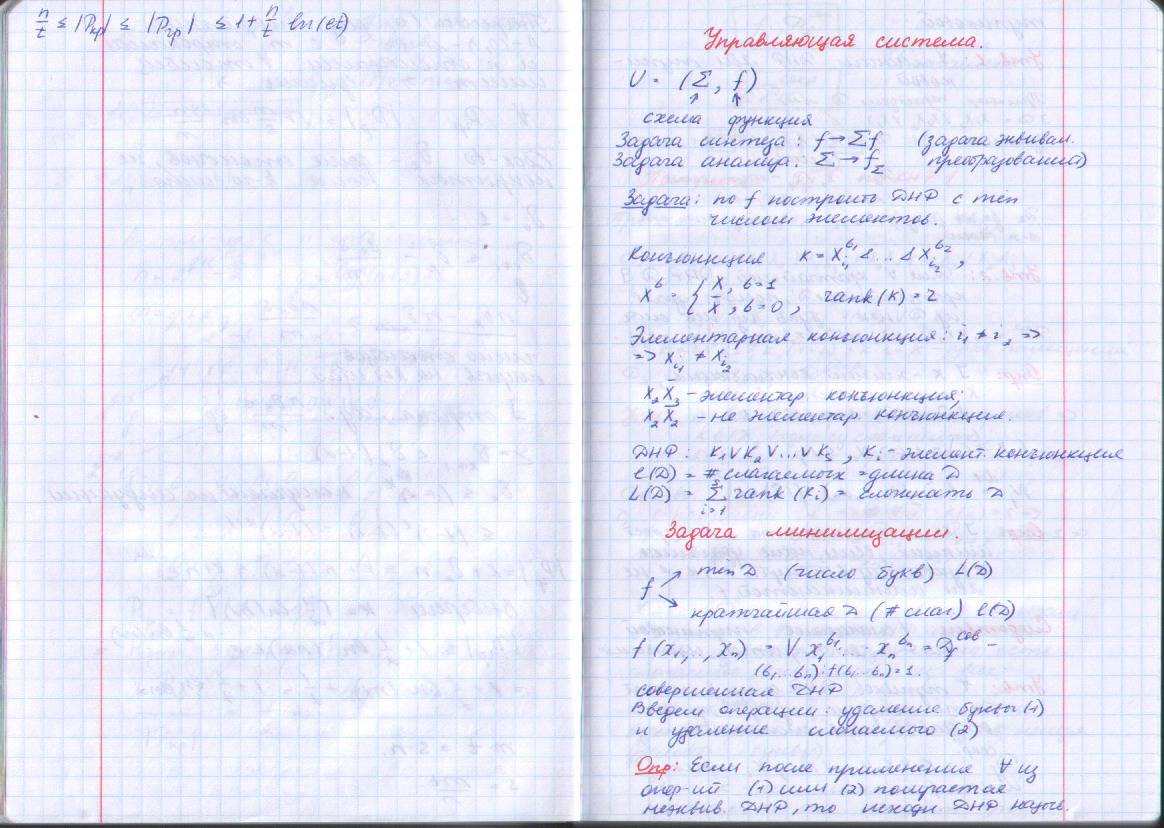 n/t ≤ |P_кр| ≤ |P_гр| ≤ 1 + n/t ln(et)
Управляющая система.
U = (Σ, f)
схема функция
Задача синтеза: f → Σf (задача эквивал.
Задача анализа: Σ → f_Σ преобразования)
Задача: по f построить ДНФ с min
числом элементов.
Конъюнкция K = X_{i₁}^{б₁} & ... & X_{i₂}^{б₂},
X^б = { X, б=1
X̄, б=0, rank(K) = r
Элементарная конъюнкция: i₁ ≠ i₂ =>
=> X_{i₁} ≠ X_{i₂}
X₂X̄₃ - элементар. конъюнкция;
X₂X̄₂ - не элементар. конъюнкция.
ДНФ: K₁∨K₂∨...∨K_s, K_i - элемент. конъюнкция
l(D) = # слагаемых = длина D
L(D) = Σ_{i=1}^{s} rank(K_i) = сложность D
Задача минимизации.
f min D (число букв) L(D)
кратчайшая D (# слаг) l(D)
f(x₁,.,x_n) = ∨ x₁^{б₁} ... x_n^{б_n} = D_f^{сов} -
(б₁...б_n): f(б₁...б_n)=1.
совершенная ДНФ
Введем операции: удаление буквы (1)
и удаление слагаемого (2)
Опр: Если после применения ∀ из
опер-ий (1) или (2) получается
неэквив. ДНФ, то исходн ДНФ назыв.